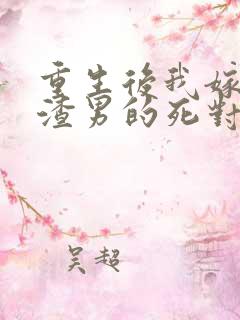 重生後我嫁
渣男的死對
吴超